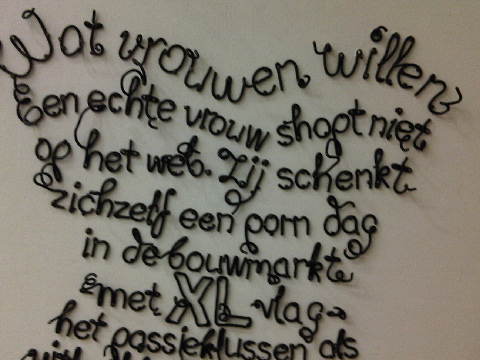 Wat vrouwen willen
Een echte vrouw shopt niet
op het web. Zij schenkt
zichzelf een porn dag
in de bouwmarkt
met XL vlag
het passieklussen als